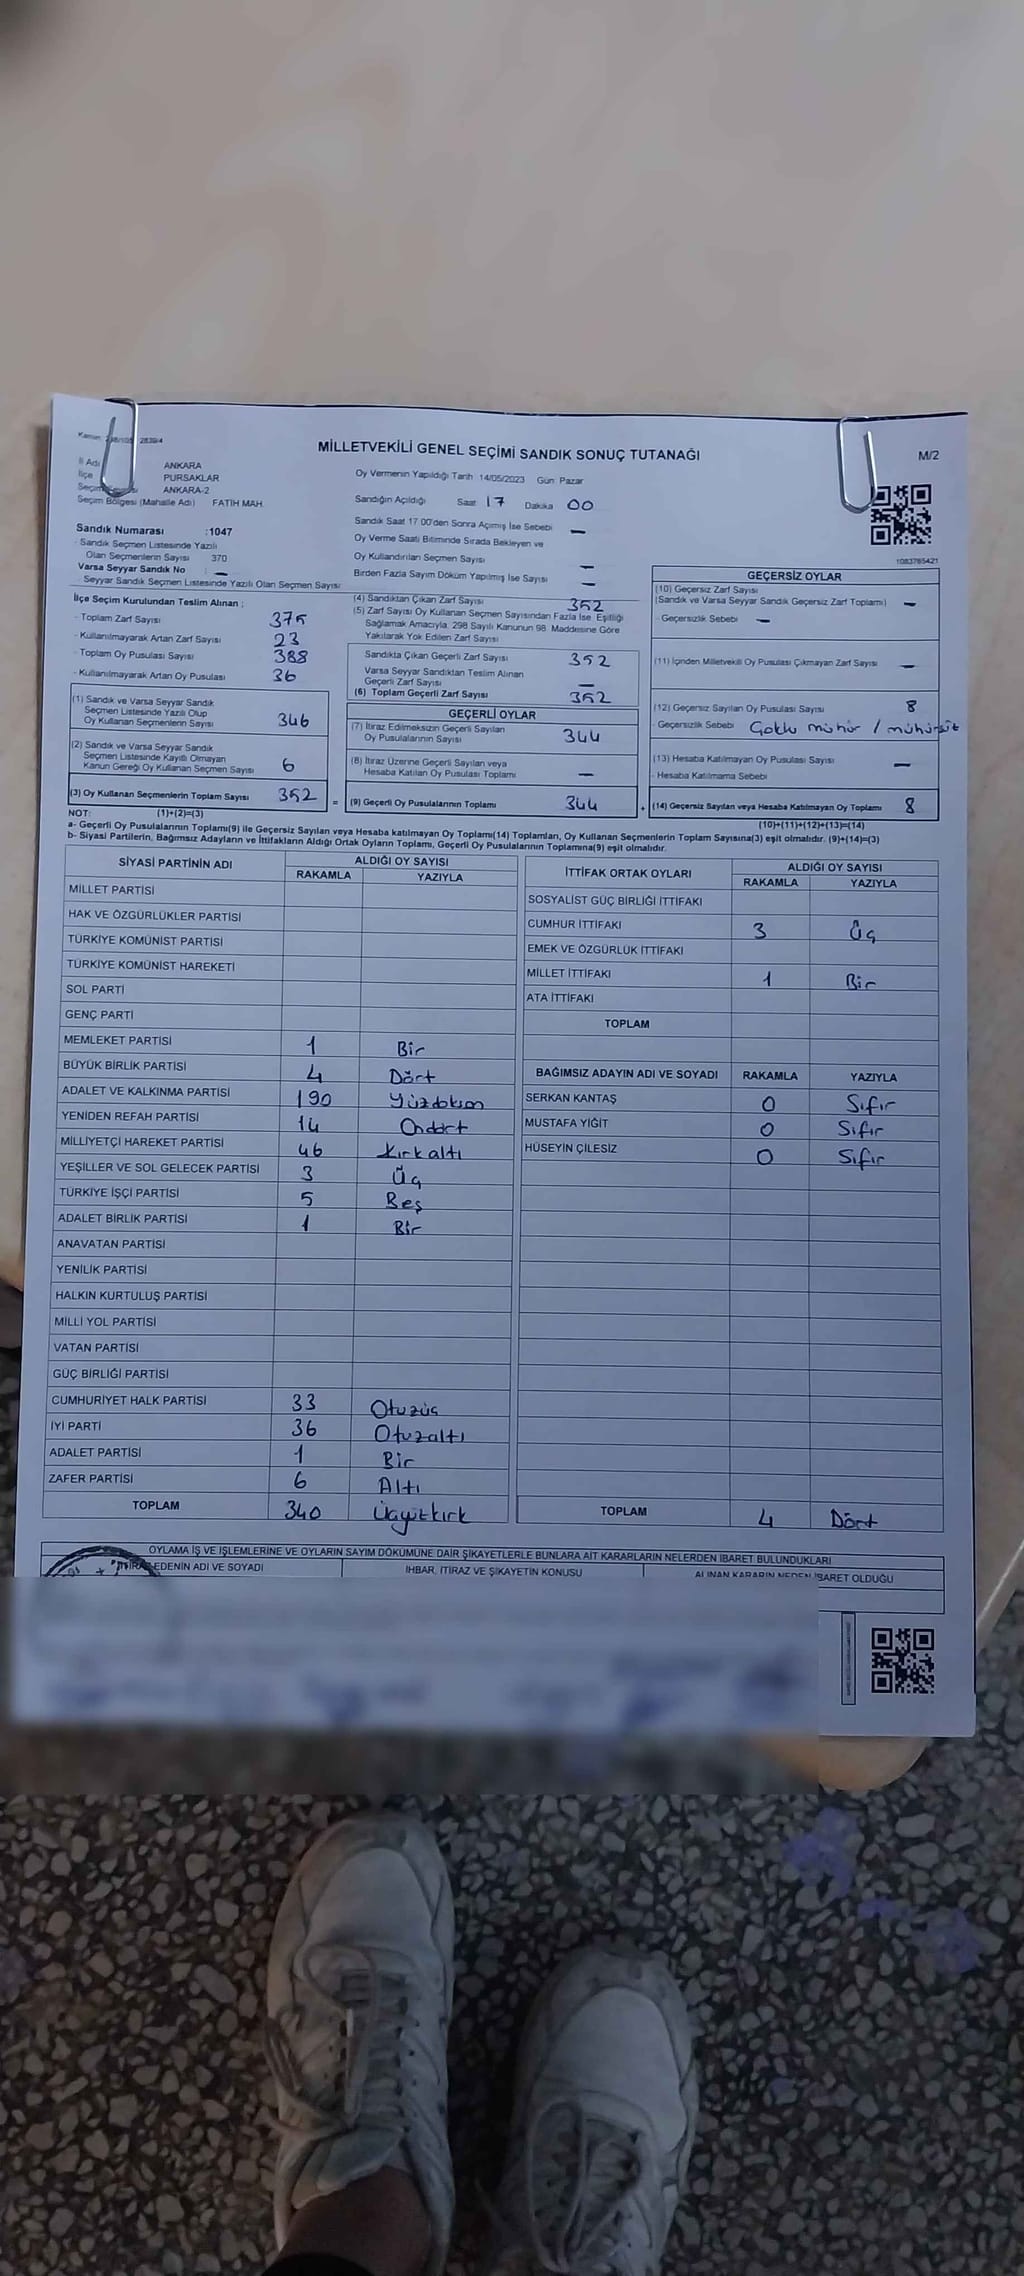 Kanun: 298/105 2839/4
MİLLETVEKİLİ GENEL SEÇİMİ SANDIK SONUÇ TUTANAĞI
M/2
İl Adı ANKARA
İlçe PURSAKLAR
Seçim ANKARA-2
Seçim Bölgesi (Mahalle Adı) FATİH MAH.
Oy Vermenin Yapıldığı Tarih 14/05/2023 Gün: Pazar
Sandığın Açıldığı Saat 17 Dakika 00
Sandık Saat 17:00'den Sonra Açımış İse Sebebi —
Oy Verme Saati Bitiminde Sırada Bekleyen ve
Oy Kullandırılan Seçmen Sayısı —
Birden Fazla Sayım Döküm Yapılmış İse Sayısı —
1083765421
Sandık Numarası :1047
- Sandık Seçmen Listesinde Yazılı
Olan Seçmenlerin Sayısı 370
Varsa Seyyar Sandık No : —
- Seyyar Sandık Seçmen Listesinde Yazılı Olan Seçmen Sayısı:
İlçe Seçim Kurulundan Teslim Alınan ;
- Toplam Zarf Sayısı 375
- Kullanılmayarak Artan Zarf Sayısı 23
- Toplam Oy Pusulası Sayısı 388
- Kullanılmayarak Artan Oy Pusulası 36
(1) Sandık ve Varsa Seyyar Sandık
Seçmen Listesinde Yazılı Olup
Oy Kullanan Seçmenlerin Sayısı 346
(2) Sandık ve Varsa Seyyar Sandık
Seçmen Listesinde Kayıtlı Olmayan
Kanun Gereği Oy Kullanan Seçmen Sayısı 6
(3) Oy Kullanan Seçmenlerin Toplam Sayısı 352
(1)+(2)=(3)
(4) Sandıktan Çıkan Zarf Sayısı 352
(5) Zarf Sayısı Oy Kullanan Seçmen Sayısından Fazla İse Eşitliği
Sağlamak Amacıyla, 298 Sayılı Kanunun 98. Maddesine Göre
Yakılarak Yok Edilen Zarf Sayısı
Sandıkta Çıkan Geçerli Zarf Sayısı 352
Varsa Seyyar Sandıktan Teslim Alınan
Geçerli Zarf Sayısı —
(6) Toplam Geçerli Zarf Sayısı 352
GEÇERLİ OYLAR
(7) İtiraz Edilmeksizin Geçerli Sayılan
Oy Pusulalarının Sayısı 344
(8) İtiraz Üzerine Geçerli Sayılan veya
Hesaba Katılan Oy Pusulası Toplamı —
= (9) Geçerli Oy Pusulalarının Toplamı 344
GEÇERSİZ OYLAR
(10) Geçersiz Zarf Sayısı
(Sandık ve Varsa Seyyar Sandık Geçersiz Zarf Toplamı) —
- Geçersizlik Sebebi —
(11) İçinden Milletvekili Oy Pusulası Çıkmayan Zarf Sayısı —
(12) Geçersiz Sayılan Oy Pusulası Sayısı 8
- Geçersizlik Sebebi Çoklu mühür / mühürsüz
(13) Hesaba Katılmayan Oy Pusulası Sayısı —
- Hesaba Katılmama Sebebi
+ (14) Geçersiz Sayılan veya Hesaba Katılmayan Oy Toplamı 8
(10)+(11)+(12)+(13)=(14)
NOT:
a- Geçerli Oy Pusulalarının Toplamı(9) ile Geçersiz Sayılan veya Hesaba katılmayan Oy Toplamı(14) Toplamları, Oy Kullanan Seçmenlerin Toplam Sayısına(3) eşit olmalıdır. (9)+(14)=(3)
b- Siyasi Partilerin, Bağımsız Adayların ve İttifakların Aldığı Ortak Oyların Toplamı, Geçerli Oy Pusulalarının Toplamına(9) eşit olmalıdır.
SİYASİ PARTİNİN ADI ALDIĞI OY SAYISI
RAKAMLA YAZIYLA
MİLLET PARTİSİ
HAK VE ÖZGÜRLÜKLER PARTİSİ
TÜRKİYE KOMÜNİST PARTİSİ
TÜRKİYE KOMÜNİST HAREKETİ
SOL PARTİ
GENÇ PARTİ
MEMLEKET PARTİSİ 1 Bir
BÜYÜK BİRLİK PARTİSİ 4 Dört
ADALET VE KALKINMA PARTİSİ 190 Yüzdoksan
YENİDEN REFAH PARTİSİ 14 Ondört
MİLLİYETÇİ HAREKET PARTİSİ 46 Kırkaltı
YEŞİLLER VE SOL GELECEK PARTİSİ 3 Üç
TÜRKİYE İŞÇİ PARTİSİ 5 Beş
ADALET BİRLİK PARTİSİ 1 Bir
ANAVATAN PARTİSİ
YENİLİK PARTİSİ
HALKIN KURTULUŞ PARTİSİ
MİLLİ YOL PARTİSİ
VATAN PARTİSİ
GÜÇ BİRLİĞİ PARTİSİ
CUMHURİYET HALK PARTİSİ 33 Otuzüç
İYİ PARTİ 36 Otuzaltı
ADALET PARTİSİ 1 Bir
ZAFER PARTİSİ 6 Altı
TOPLAM 340 Üçyüzkırk
İTTİFAK ORTAK OYLARI ALDIĞI OY SAYISI
RAKAMLA YAZIYLA
SOSYALİST GÜÇ BİRLİĞİ İTTİFAKI
CUMHUR İTTİFAKI 3 Üç
EMEK VE ÖZGÜRLÜK İTTİFAKI
MİLLET İTTİFAKI 1 Bir
ATA İTTİFAKI
TOPLAM
BAĞIMSIZ ADAYIN ADI VE SOYADI RAKAMLA YAZIYLA
SERKAN KANTAŞ 0 Sıfır
MUSTAFA YİĞİT 0 Sıfır
HÜSEYİN ÇİLESİZ 0 Sıfır
TOPLAM 4 Dört
OYLAMA İŞ VE İŞLEMLERİNE VE OYLARIN SAYIM DÖKÜMÜNE DAİR ŞİKAYETLERLE BUNLARA AİT KARARLARIN NELERDEN İBARET BULUNDUKLARI
İTİRAZ EDENİN ADI VE SOYADI İHBAR, İTİRAZ VE ŞİKAYETİN KONUSU ALINAN KARARIN NEDEN İBARET OLDUĞU